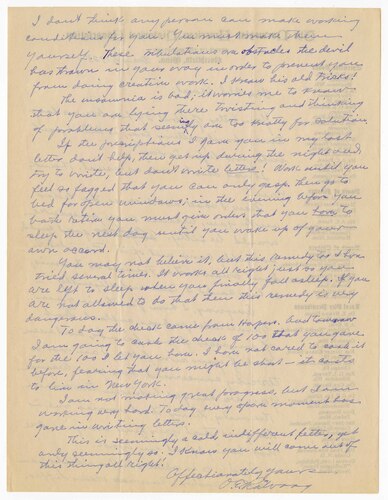 I don't think any person can make working
conditions for you. You must make them
yourself. These tribulations are obstacles the devil
has thrown in your way in order to prevent you
from doing creative work. I know his old tricks!
The insomnia is bad; it worries me to know
that you are lying there twisting and thinking
of problems that seemingly are too knotty for solution.
If the prescriptions I gave you in my last
letter don't help, then get up during the night and
try to write, but don't write letters! Work until you
feel so fagged that you can only gasp, then go to
bed for open windows; in the evening before you
must give orders that you have to
sleep the next day until you wake up of your
own accord.
You may not believe it, but this remedy so I have
tried several times. It works all right just so you
are left to sleep when you finally fall asleep. If you
are not allowed to do that then this remedy is very
dangerous.
Today the check came from Harpers. And tomorrow
I am going to cash the check of 100 that you gave
for the 100 I let you have. I have not cared to cash it
before, fearing that you might be short — it costs
to live in New York.
I am not making great progress, but I am
working very hard. Today every spare moment has
gone in writing letters.
This is seemingly a cold, indifferent letter, yet
only seemingly so. I know you will come out of
this thing all right!
Affectionately yours